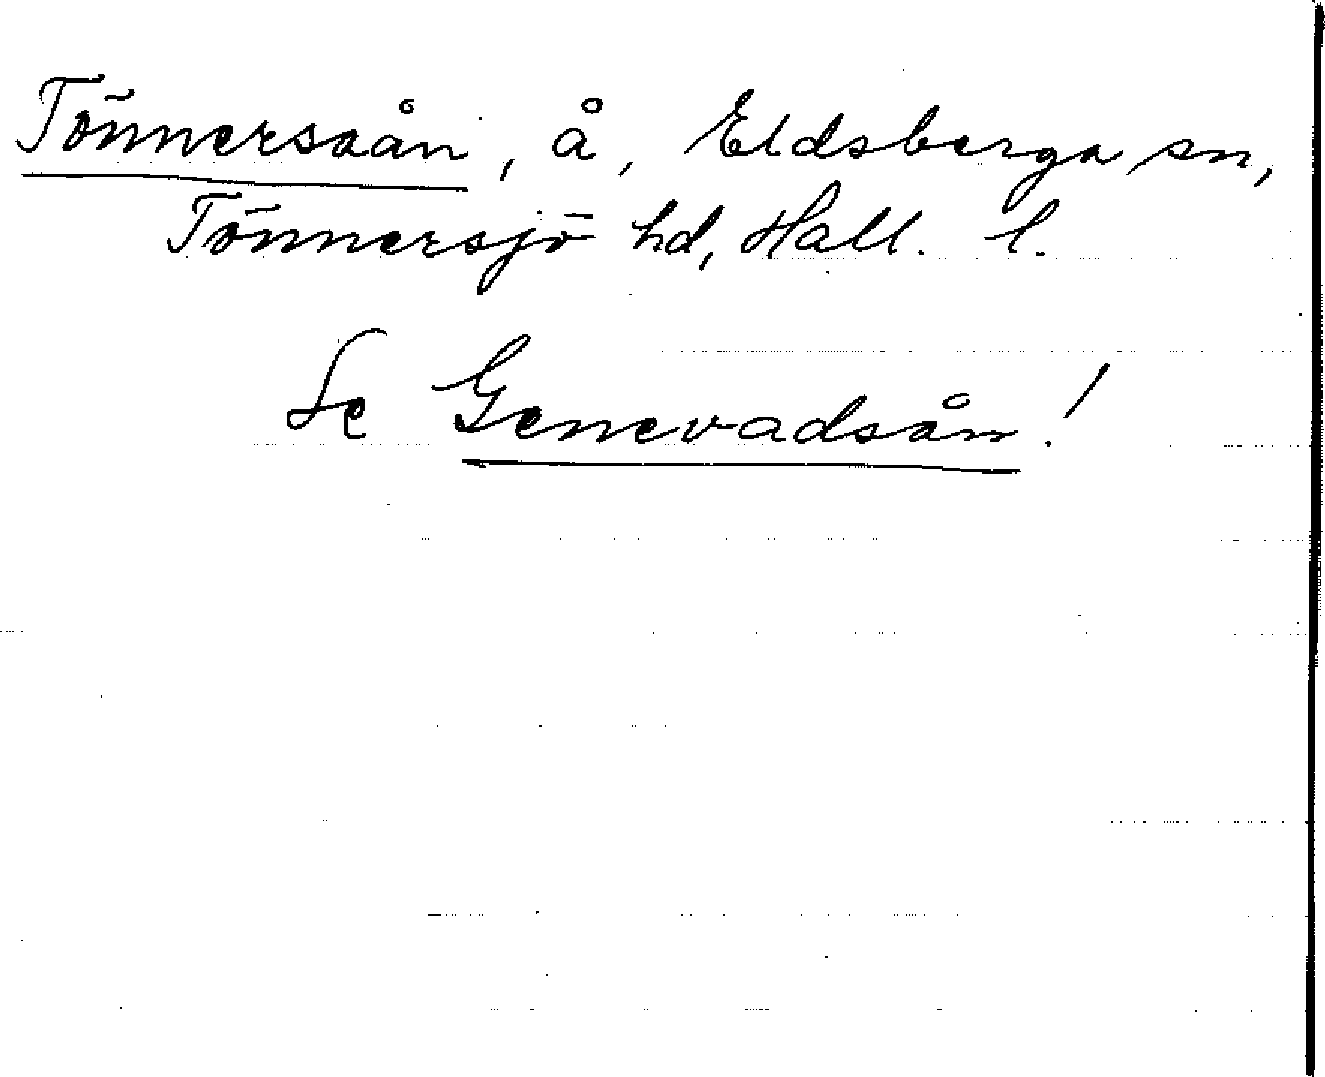 Tönnersaån, å, Eldsberga sn,
Tönnersjö hd, Hall. l.
Se Genevadsån!